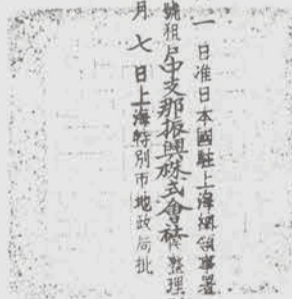 一日准日本國駐上海總領事署
號租戶中支那振興株式會社整理
月七日上海特別市地政局批